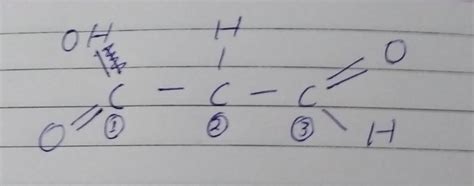 OH H O
C — C — C
O ① ② ③ H